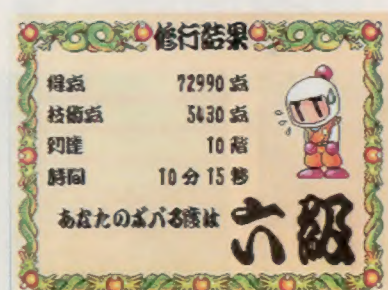 修行結果
得点 72990 点
技術点 5430 点
到達 10 階
時間 10 分 15 秒
あなたのボバる度は
六級